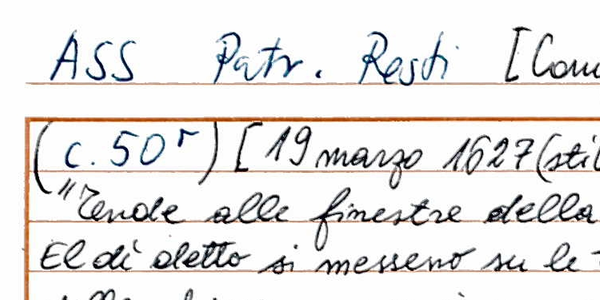 ASS Patr. Resti [Com
(c. 50r) [19 marzo 1627 (stil
"Tende alle finestre della
El dì detto si messeno su le